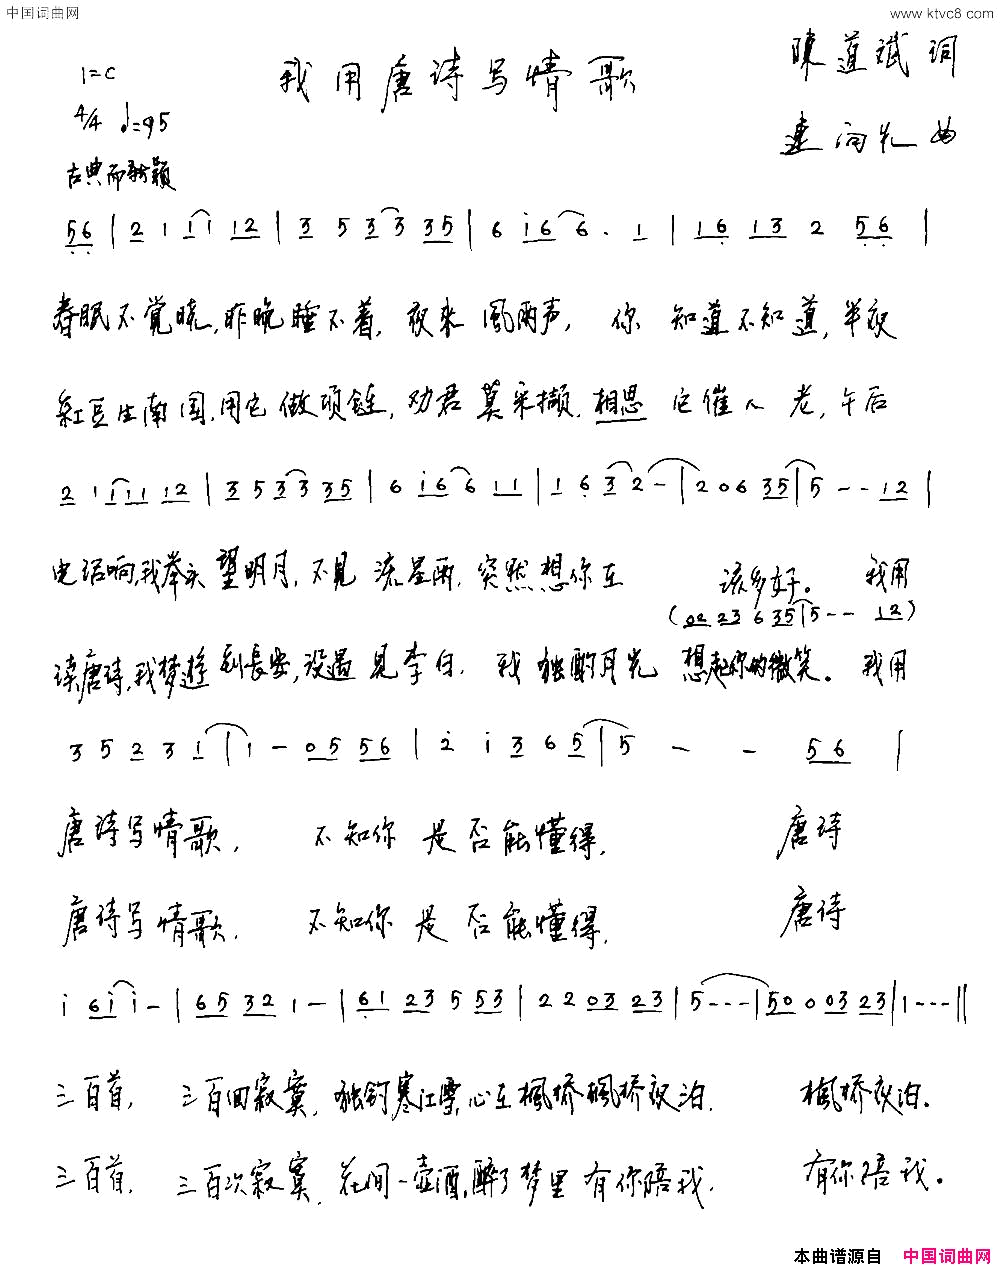 中国词曲网
www.ktvc8.com
1=C
我用唐诗写情歌
陳道斌 词
4/4 ♩=95
曲
古典而新颖
56 | 2 1 1 1 12 | 3 5 3 3 35 | 6 i6 6 . 1 | 16 13 2 56 |
春眠不觉晓,昨晚睡不着,夜来風雨声,你 知道不知道,半夜
紅豆生南国,用它做项链,劝君莫采撷,相思 它催人老,午后
2 1 111 12 | 3 5 3 3 35 | 6 i6 6 11 | 1 6 3 2 - | 2 0 6 35 | 5 - - 12 |
电话响,我举头望明月,不見流星雨,突然想你在 该多好。 我用
(02 23 6 35 | 5 - - 12)
读唐诗,我梦遊到長安,没遇見李白,我独酌月光 想起你的微笑。我用
3 5 2 3 1 | 1 - 05 56 | 2 i 3 6 5 | 5 - - 56 |
唐诗写情歌, 不知你是否能懂得, 唐诗
唐诗写情歌, 不知你是否能懂得, 唐诗
i 6i i - | 65 32 1 - | 61 23 5 53 | 2 2 03 23 | 5 - - - | 50 0 03 23 | 1 - - - ||
三百首, 三百回寂寞,独钓寒江雪,心在楓桥楓桥夜泊, 楓桥夜泊。
三百首, 三百次寂寞,花间一壶酒,醉了梦里有你陪我, 有你陪我。
本曲谱源自 中国词曲网